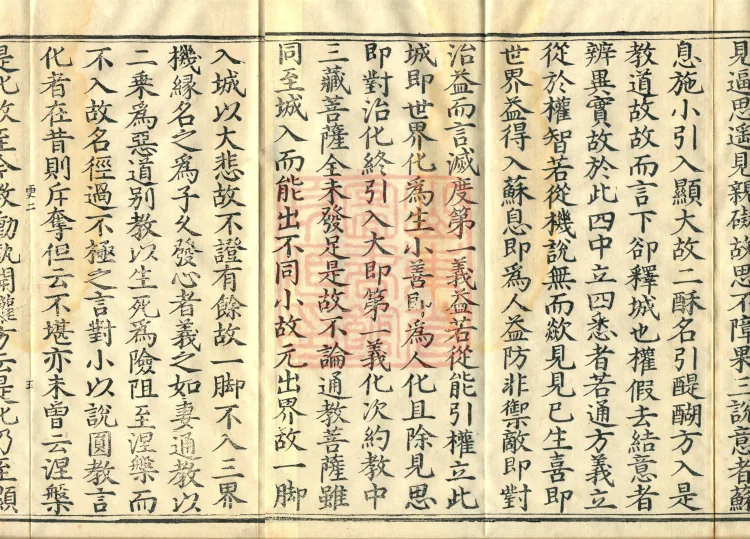 見逼思遥見親疎故思不障果三說意者蘇
息施小引入顯大故二酥名引醍醐方入是
教道故故而言下卻釋城也權假去結意者
辨異實故於此四中立四悉者若通方義立
從於權智若從機說無而欻見見已生喜即
世界益得入蘇息即爲人益防非禦敵即對
治益而言滅度第一義益若從能引權立此
城即世界化爲生小善即爲人化且除見思
即對治化終引入大即第一義化次約教中
三藏菩薩全未發足是故不論通教菩薩雖
同至城入而能出不同小故元出界故一脚
入城以大悲故不證有餘故一脚不入三界
機縁名之爲子久發心者義之如妻通教以
二乗爲惡道別教以生死爲險阻至涅槃而
不入故名徑過不極之言對小以說圓教言
化者在昔則斥奪但云不堪亦未曾云涅槃
更二
五
是化故至今教動執開權方云是化乃至顯